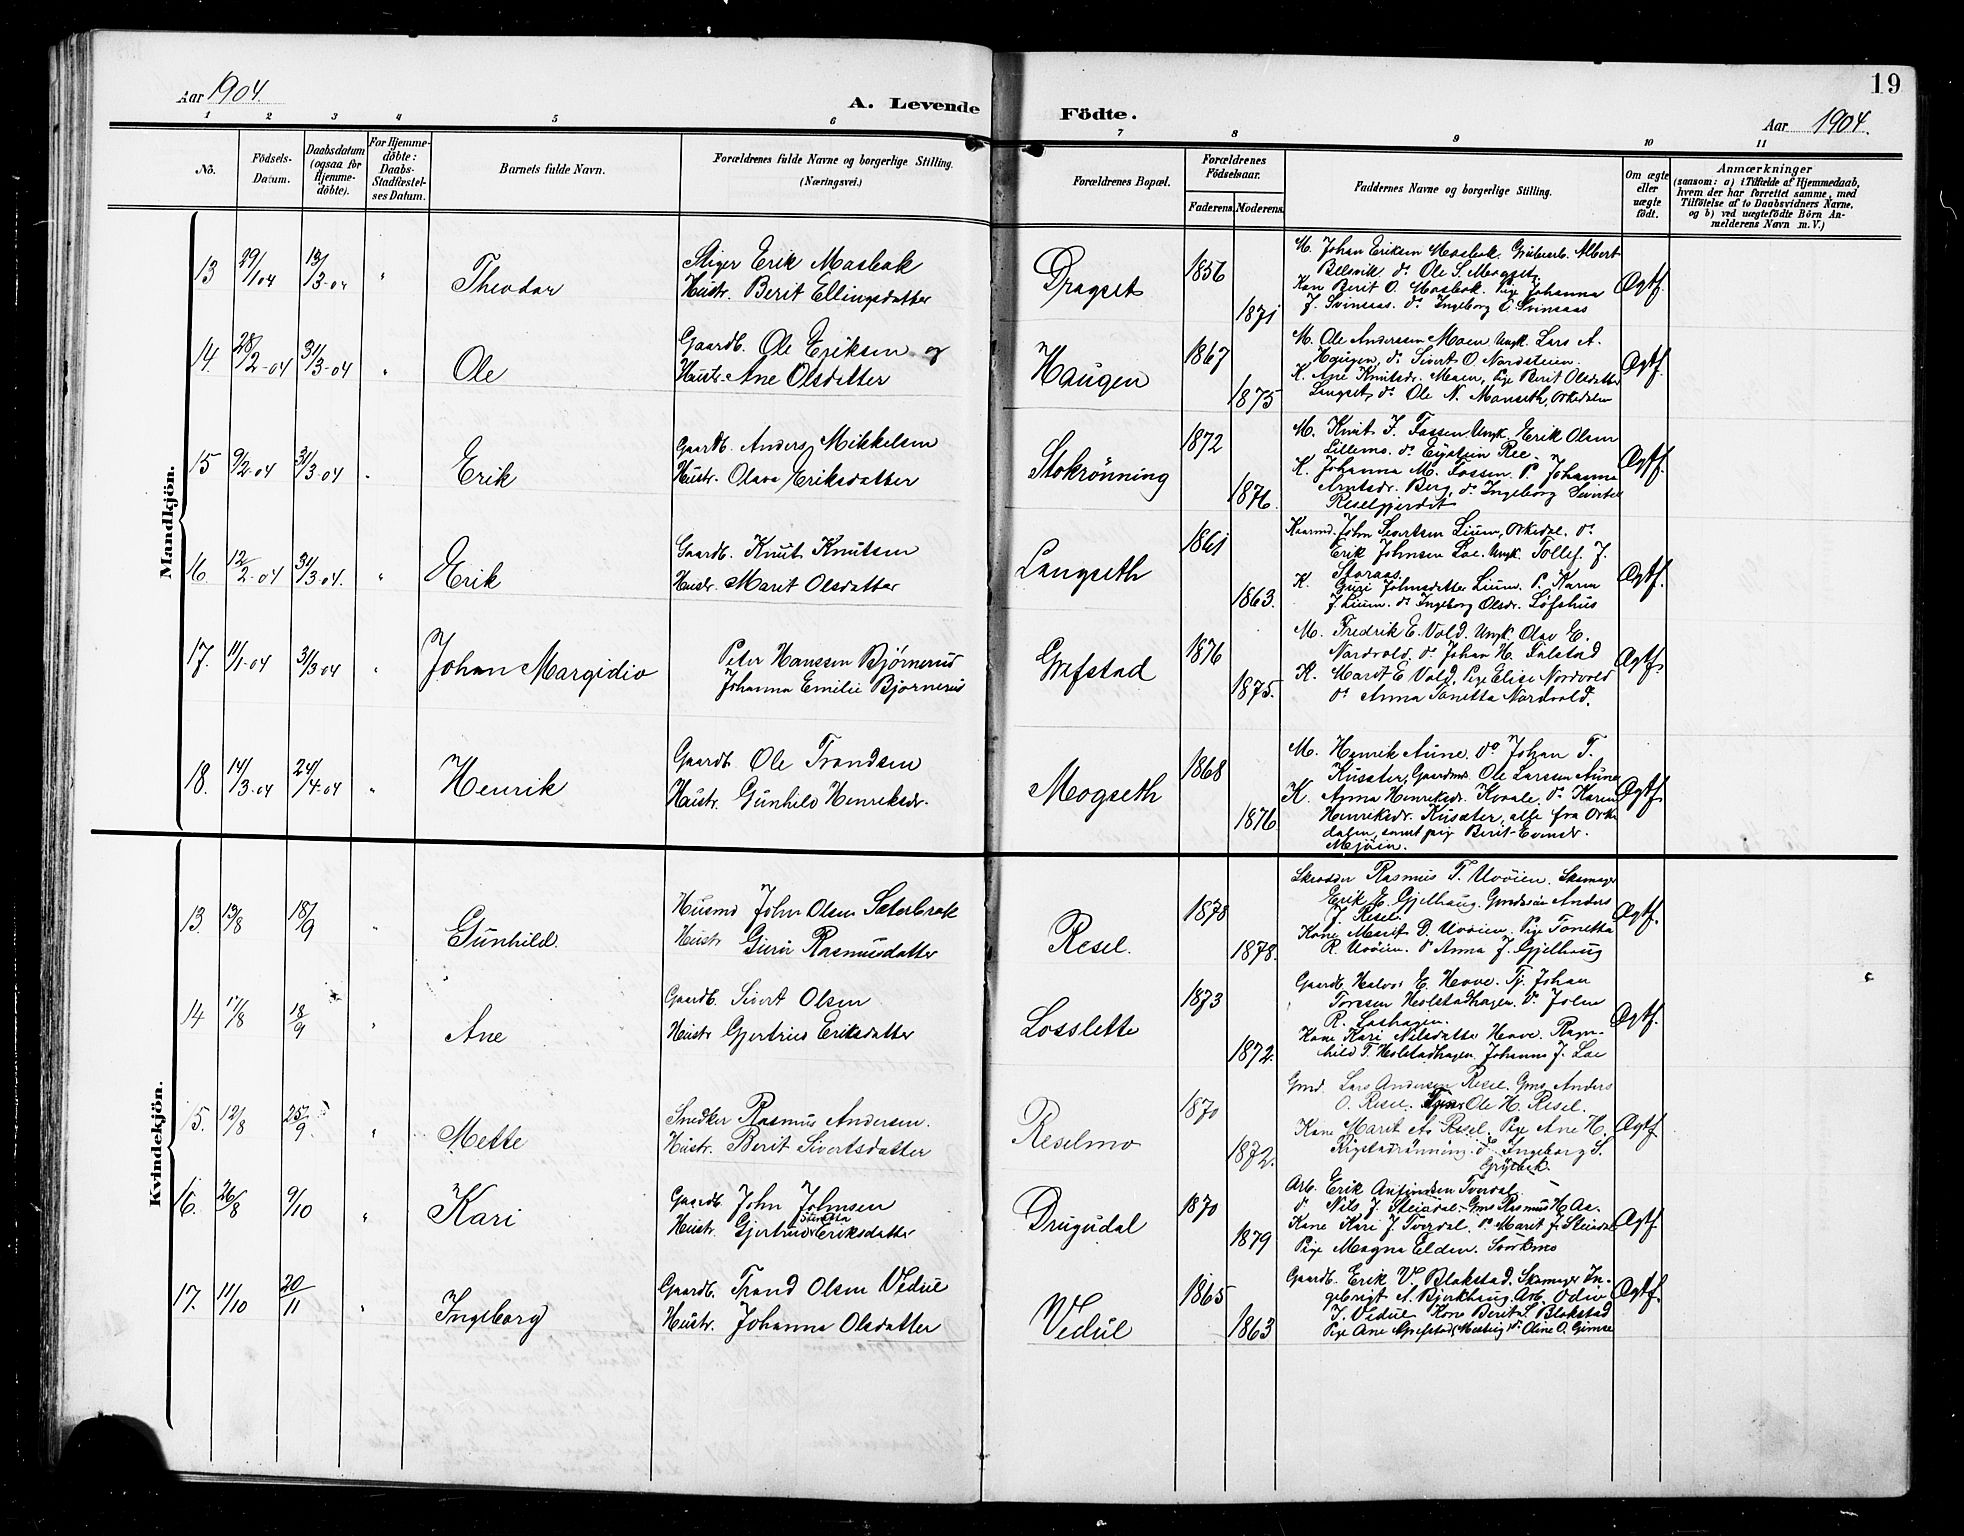 19
Aar 1904.
A. Levende Födte.
Aar 1904.
1 2 3 4 5 6 7 8 9 10 11
No.
Födsels-Datum.
Daabsdatum (ogsaa for Hjemmedöbte).
For Hjemmedöbte: Daabs-Stadfæstelses Datum.
Barnets fulde Navn.
Forældrenes fulde Navne og borgerlige Stilling.
(Næringsvei.)
Forældrenes Bopæl.
Forældrenes Födselsaar.
Faderens. Moderens.
Faddernes Navne og borgerlige Stilling.
Om ægte eller uægte födt.
Anmærkninger
(saasom: a) i Tilfælde af Hjemmedaab,
hvem der har forrettet samme, med
Tilföielse af to Daabsvidners Navne,
og b) ved uægtefödte Börn An-
melderens Navn m. V.)
Mandkjön.
13 29/1 04 13/3-04 " Theodor
Stiger Erik Mosbak
Hustr. Berit Ellingsdatter
Dragset 1856 1871
M. Johan Eriksen Mosbak. Grubearb. Albert
Belsvik. do Ole S. Mogset,
Kon Berit O. Mosbak. Pige Johanna
J. Svinsaas do Ingeborg E. Svinsaas
Ægtf.
14. 28/2-04 31/3-04 " Ole
Gaardb. Ole Eriksen og
Hustr. Ane Olsdatter
Haugen 1867 1875
M. Ole Anderssen Moen, Ungk. Lars A.
Haugen, do Sivert O. Nordsteien.
K. Ane Knutsdr. Moen, Pige Berit Olsdatter
Langset, do Ole N. Monseth, Orkedalen
Ægtf.
15 9/2-04 31/3-04 " Erik
Gaardb. Anders Mikkelsen
Hustr. Olava Eriksdatter
Stokrönning 1872 1876.
M. Knut J. Fossen. Ungk. Erik Olsen
Lillemo. do Eystein Ree.
K. Johanna M. Fossen. P. Johanna
Arntsdr. Berg, do Ingeborg Sivertsd.
Reselgjerdet
Ægtf.
16. 12/2-04 31/3-04. " Erik
Gaardb. Knut Knutsen
Hustr. Marit Olsdatter
Langseth 1861 1863.
Kaarmd. John Sivertsen Lium, Orkedal. do
Erik Johnsen Loe. Ungk. Tollef. J.
Storaas.
K. Guri Johnsdatter Lium. P. Karen
J. Lium. do Ingeborg Olsdr. Löfshus
Ægtf.
17. 11/1-04 31/3-04 " Johan Margidio
Peter Hanssen Bjørnerud
Johanna Emilie Bjørnerus
Grefstad 1876 1875.
M. Fredrik E. Vold. Ungk. Olav E.
Nordvold, do Johan H. Folstad
K. Marit E Vold, Pige Elise Nordvold
do Anna Tanetta Nordvold.
Ægtf.
18. 14/3-04 24/4-04 " Henrik
Gaardb Ole Trondsen
Hustr. Gunhild Henriksdr.
Mogseth 1868 1876.
M. Henrik Aune. do Johan T.
Kusæter, Gaardmd. Ole Larssen Aune
K. Anna Henriksdr. Kvaale. do Karen
Henriksdr. Kusæter, alle fra Orke
dalen, samt pige Berit Evensdr.
Mjöen.
Ægtf.
Kvindekjön.
13. 13/8 18/9 " Gunhild.
Husmd John Olsen Sæterbrok
Hustr Guru Rasmusdatter
Resel. 1878 1878.
Skrædder Rasmus T. Uvöien. Skomager
Erik E. Gjelhaug. Anders
J. Resel.
Kone Marit D. Uvöien. Pige Tonetta
R. Uvöien. do Anna J. Gjelhaug
Ægtf.
14 17/8 18/9 " Ane
Gaardb. Sivert Olsen
Hustr Gjertrud Eriksdatter
Losslette 1873 1872.
Gaardb Halvor E. Hove. Tj. Johan
Torssen Holstadhagen. do John
R. Loshagen.
Kone Kari Nilsdatter Hove. Ragn-
hild T. Holstadhagen. Johanna J. Loe
Ægtf.
15. 12/8 25/9. " Mette
Snedker Rasmus Andersen.
Hustr. Berit Sivertsdatter
Reselmo 1870 1872.
Gmd. Lars Andersen Resel. Gms. Anders
O. Resel. Ole H. Resel.
Kone Marit A. Resel. Pige Ane H.
Rigstadrönning. do Ingeborg S.
Grytbak
Ægtf
16. 26/8 9/10 " Kari
Gaardb. John Johnsen
Hustr. Gjertrud Sivertsda Eriksdatter
Drugudal 1870 1879
Arb. Erik Anfindsen Tverdal
do. Nils J. Steindal. Gms Rasmus H Aa.
Kone Kari J. Tverdal. do Marit J. Steindal
Pige Magna Elden. Svorkmo
Ægtf.
17. 11/10 20/11 " Ingeborg
Gaardb. Trond Olsen Vedul
Hustr. Johanna Olsdatter
Vedul 1865 1863
Gaardb. Erik V. Blokstad. Skomager In-
gebrigt A. Bjerkhaug. Arb. Odin
J. Vedul. Kone Berit S Blokstad
Pige Ane Grefstad, Meslug do Oline O. Gimse
Ægtf.